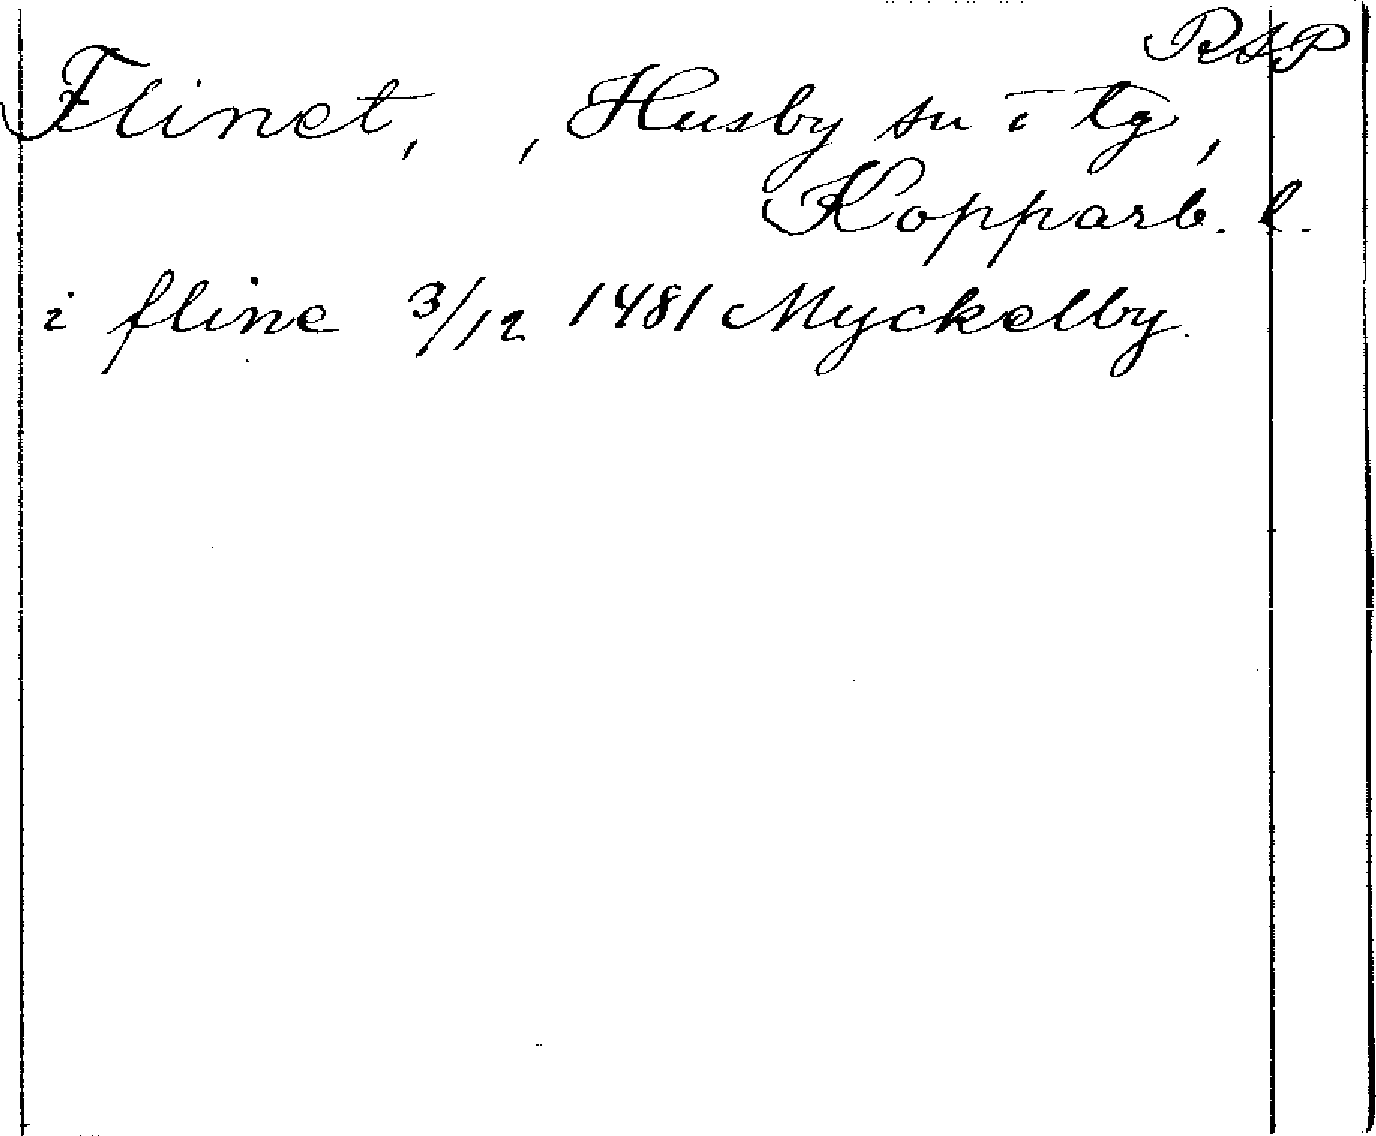 RAP
Flinet, , Husby sn i tg,
Kopparb. l.
i fline 3/12 1481 Myckelby.